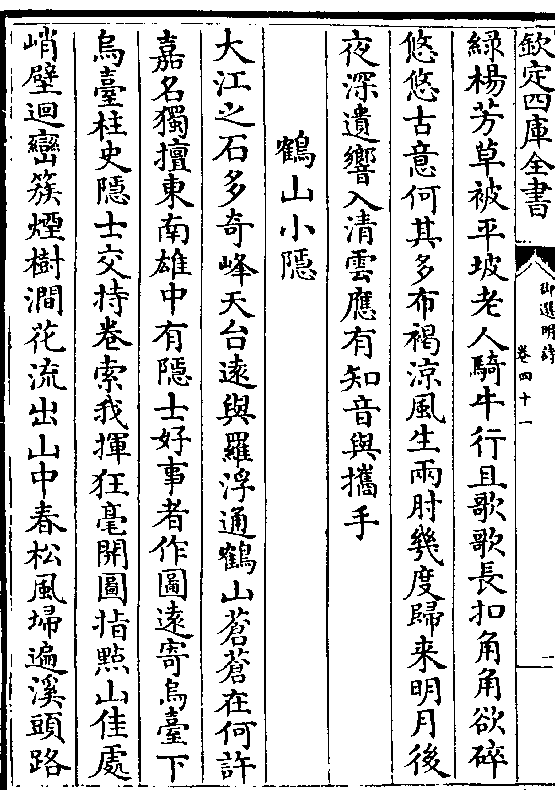 欽定四庫全書
御選明詩
卷四十一
一
綠楊芳草被平坡老人騎牛行且歌歌長扣角角欲碎
悠悠古意何其多布褐涼風生兩肘幾度歸来明月後
夜深遺響入清雲應有知音與攜手
鶴山小隱
大江之石多奇峰天台遠與羅浮通鶴山蒼蒼在何許
嘉名獨擅東南雄中有隱士好事者作圖遠寄烏臺下
烏臺柱史隱士交持卷索我揮狂毫開圖指點山佳處
峭壁迴巒簇煙樹澗花流出山中春松風埽遍溪頭路